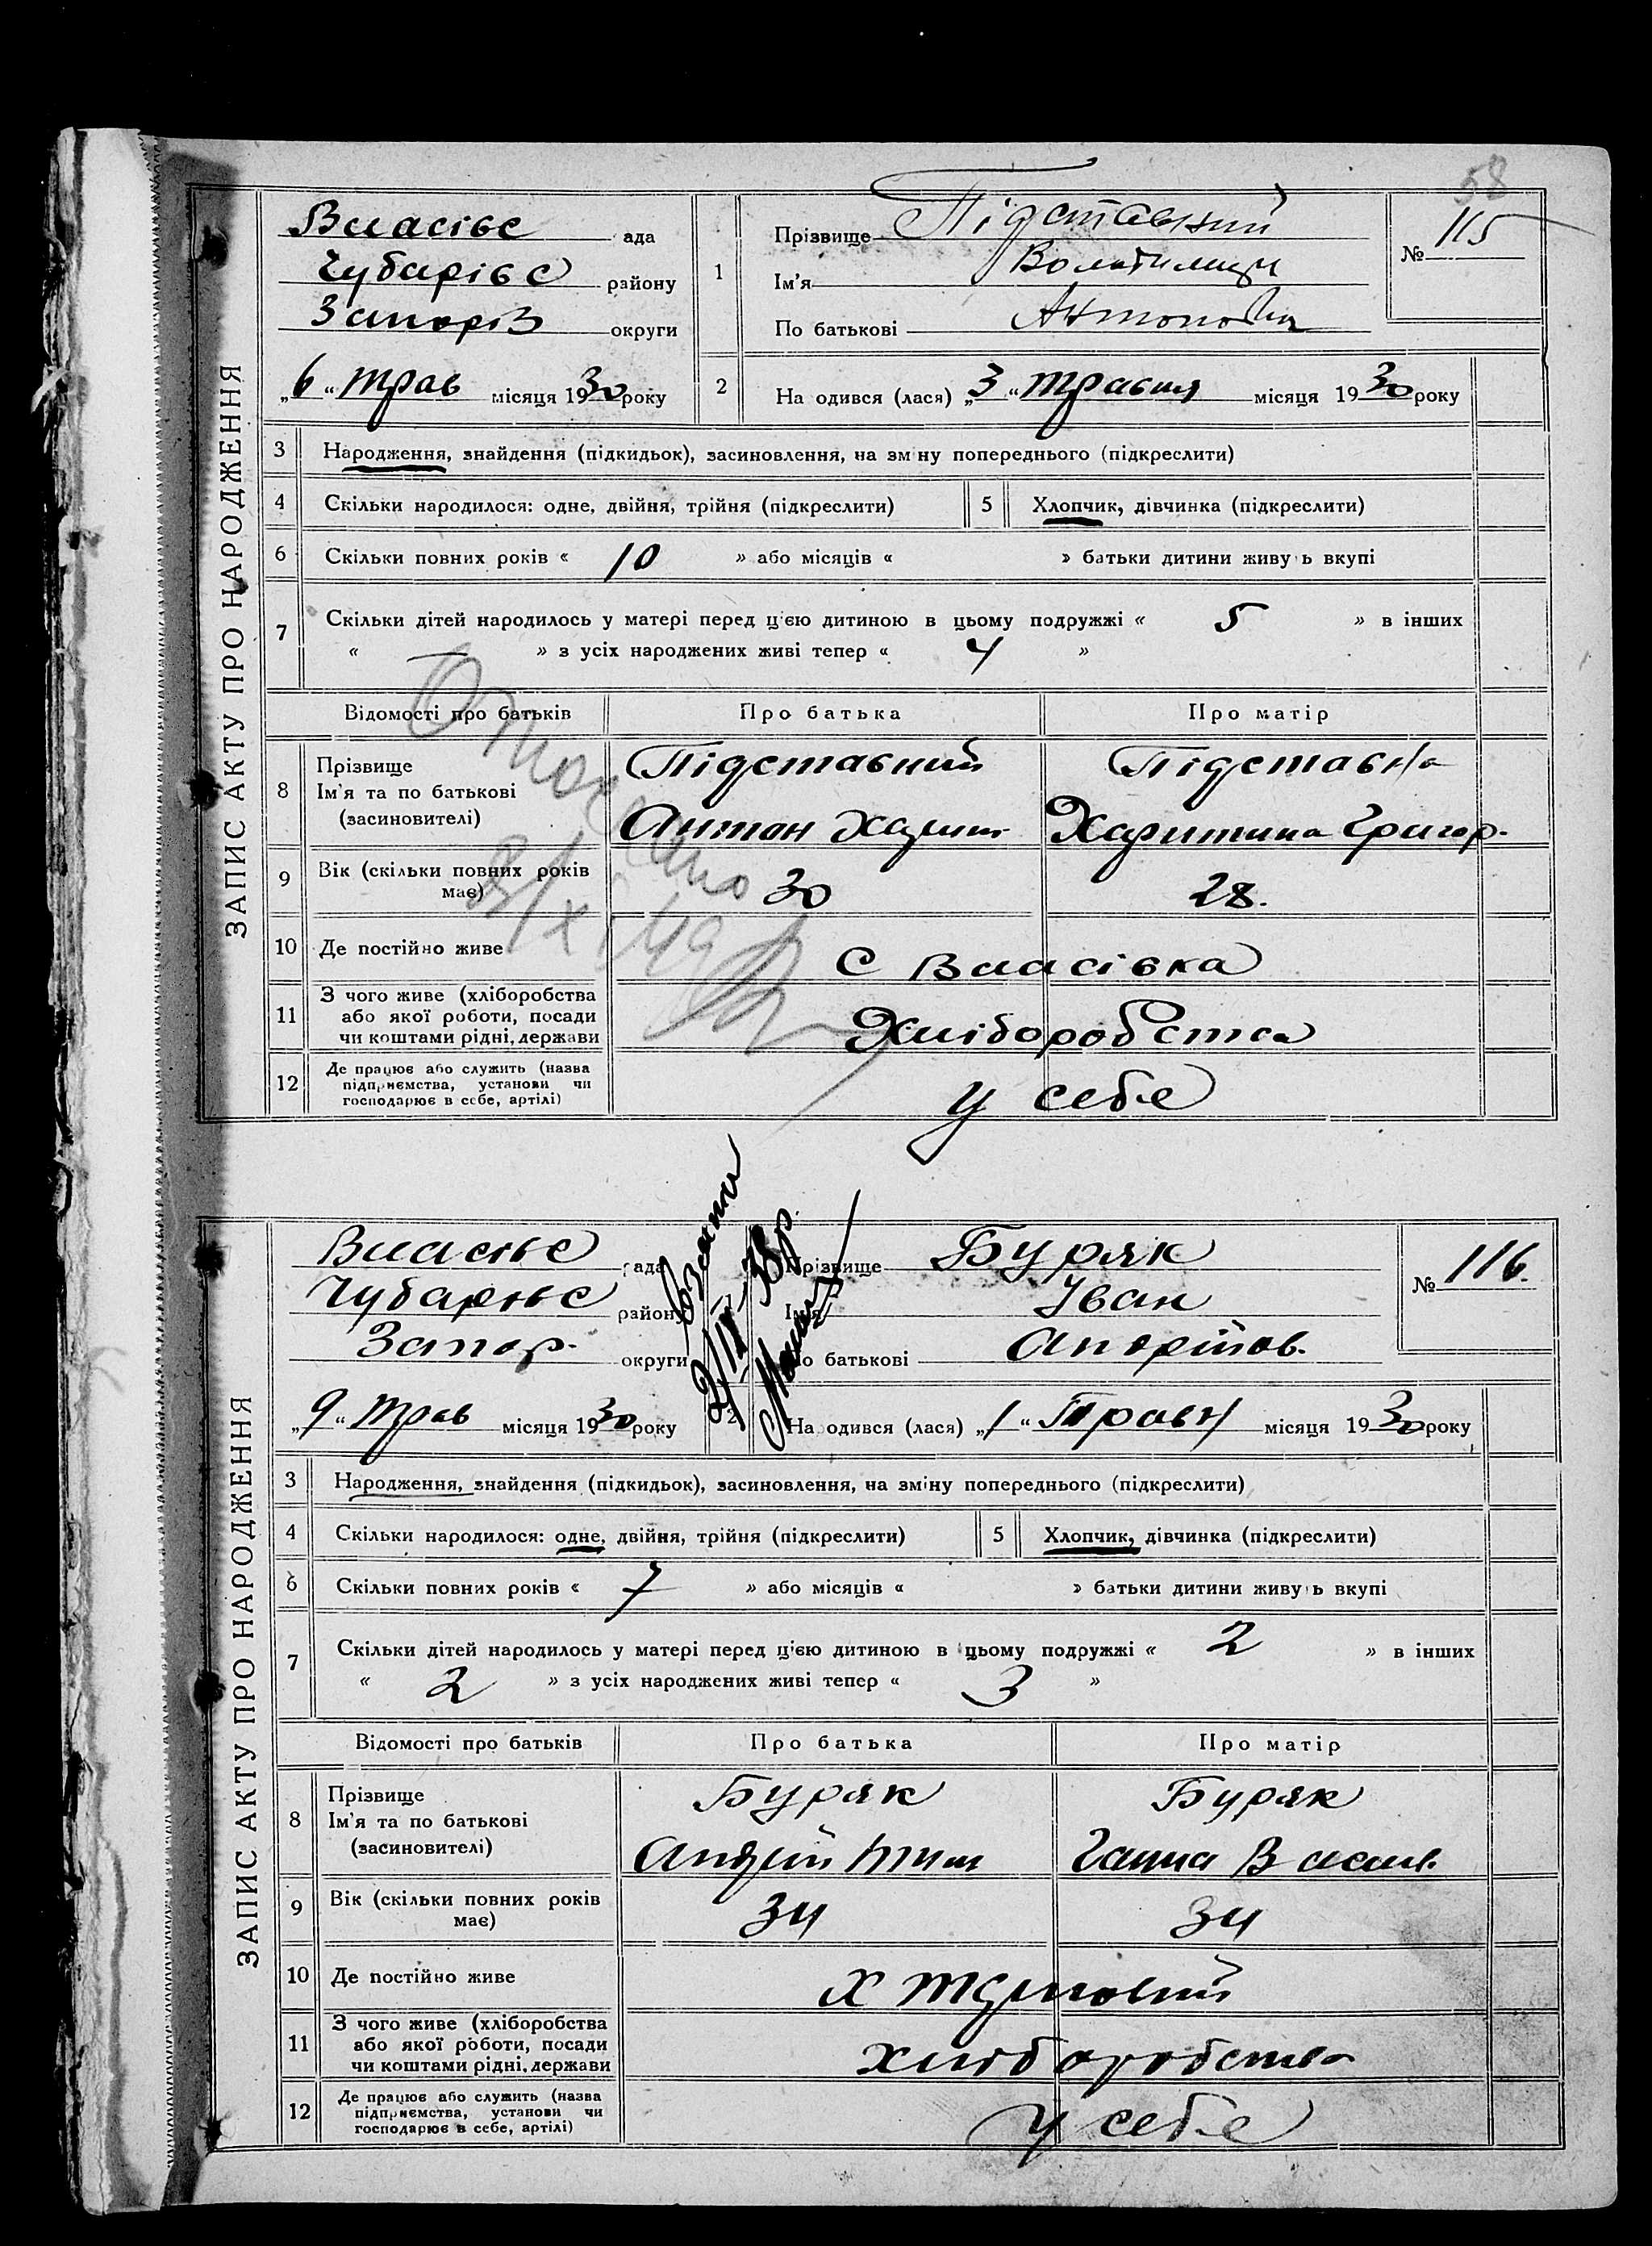 58
ЗАПИС АКТУ ПРО НАРОДЖЕННЯ
Власівс ада
Чубарівс району
Запоріз округи
„6“ трав місяця 1930 року
1 Прізвище Підставний
Ім'я Володимир
По батькові Антонович
№ 115
2 На одився (лася) „3“ травня місяця 1930 року
3 Народження, знайдення (підкидьок), засиновлення, на зм ну попереднього (підкреслити)
4 Скільки народилося: одне, двійня, трійня (підкреслити) 5 Хлопчик, дівчинка (підкреслити)
6 Скільки повних років « 10 » або місяців « » батьки дитини живу ь вкупі
7 Скільки дітей народилось у матері перед цією дитиною в цьому подружжі « 5 » в інших
« — » з усіх народжених живі тепер « 4 »
Відомості про батьків Про батька Про матір
8 Прізвище
Ім'я та по батькові
(засновителі)
Підставний Підставна
Антон Харит. Харитина Григор.
9 Вік (скільки повних років має) 30 28.
10 Де постійно живе с Власівка
11 З чого живе (хліборобства
або якої роботи, посади
чи коштами рідні, держави
Хліборобство
12 Де працює або служить (назва
підприємства, установи чи
господарює в себе, артілі)
у себе
ЗАПИС АКТУ ПРО НАРОДЖЕННЯ
Власівс ада
Чубарівс району
Запор. округи
„9“ трав місяця 1930 року
Прізвище Буряк
Ім'я Іван
По батькові
№ 116.
2 На одився (лася) „1“ Травн місяця 1930 року
3 Народження, знайдення (підкидьок), засиновлення, на зміну попереднього (підкреслити)
4 Скільки народилося: одне, двійня, трійня (підкреслити) 5 Хлопчик, дівчинка (підкреслити)
6 Скільки повних років « 7 » або місяців « » батьки дитини живу ь вкупі
7 Скільки дітей народилось у матері перед цією дитиною в цьому подружжі « 2 » в інших
« 2 » з усіх народжених живі тепер « 3 »
Відомості про батьків Про батька Про матір
8 Прізвище
Ім'я та по батькові
(засиновителі)
Буряк Буряк
Андрій Тим Ганна Васил.
9 Вік (скільки повних років має) 34 34
10 Де постійно живе х
11 З чого живе (хліборобства
або якої роботи, посади
чи коштами рідні, держави
хліборобства
12 Де працює або служить (назва
підприємства, установи чи
господарює в себе, артілі)
у себе